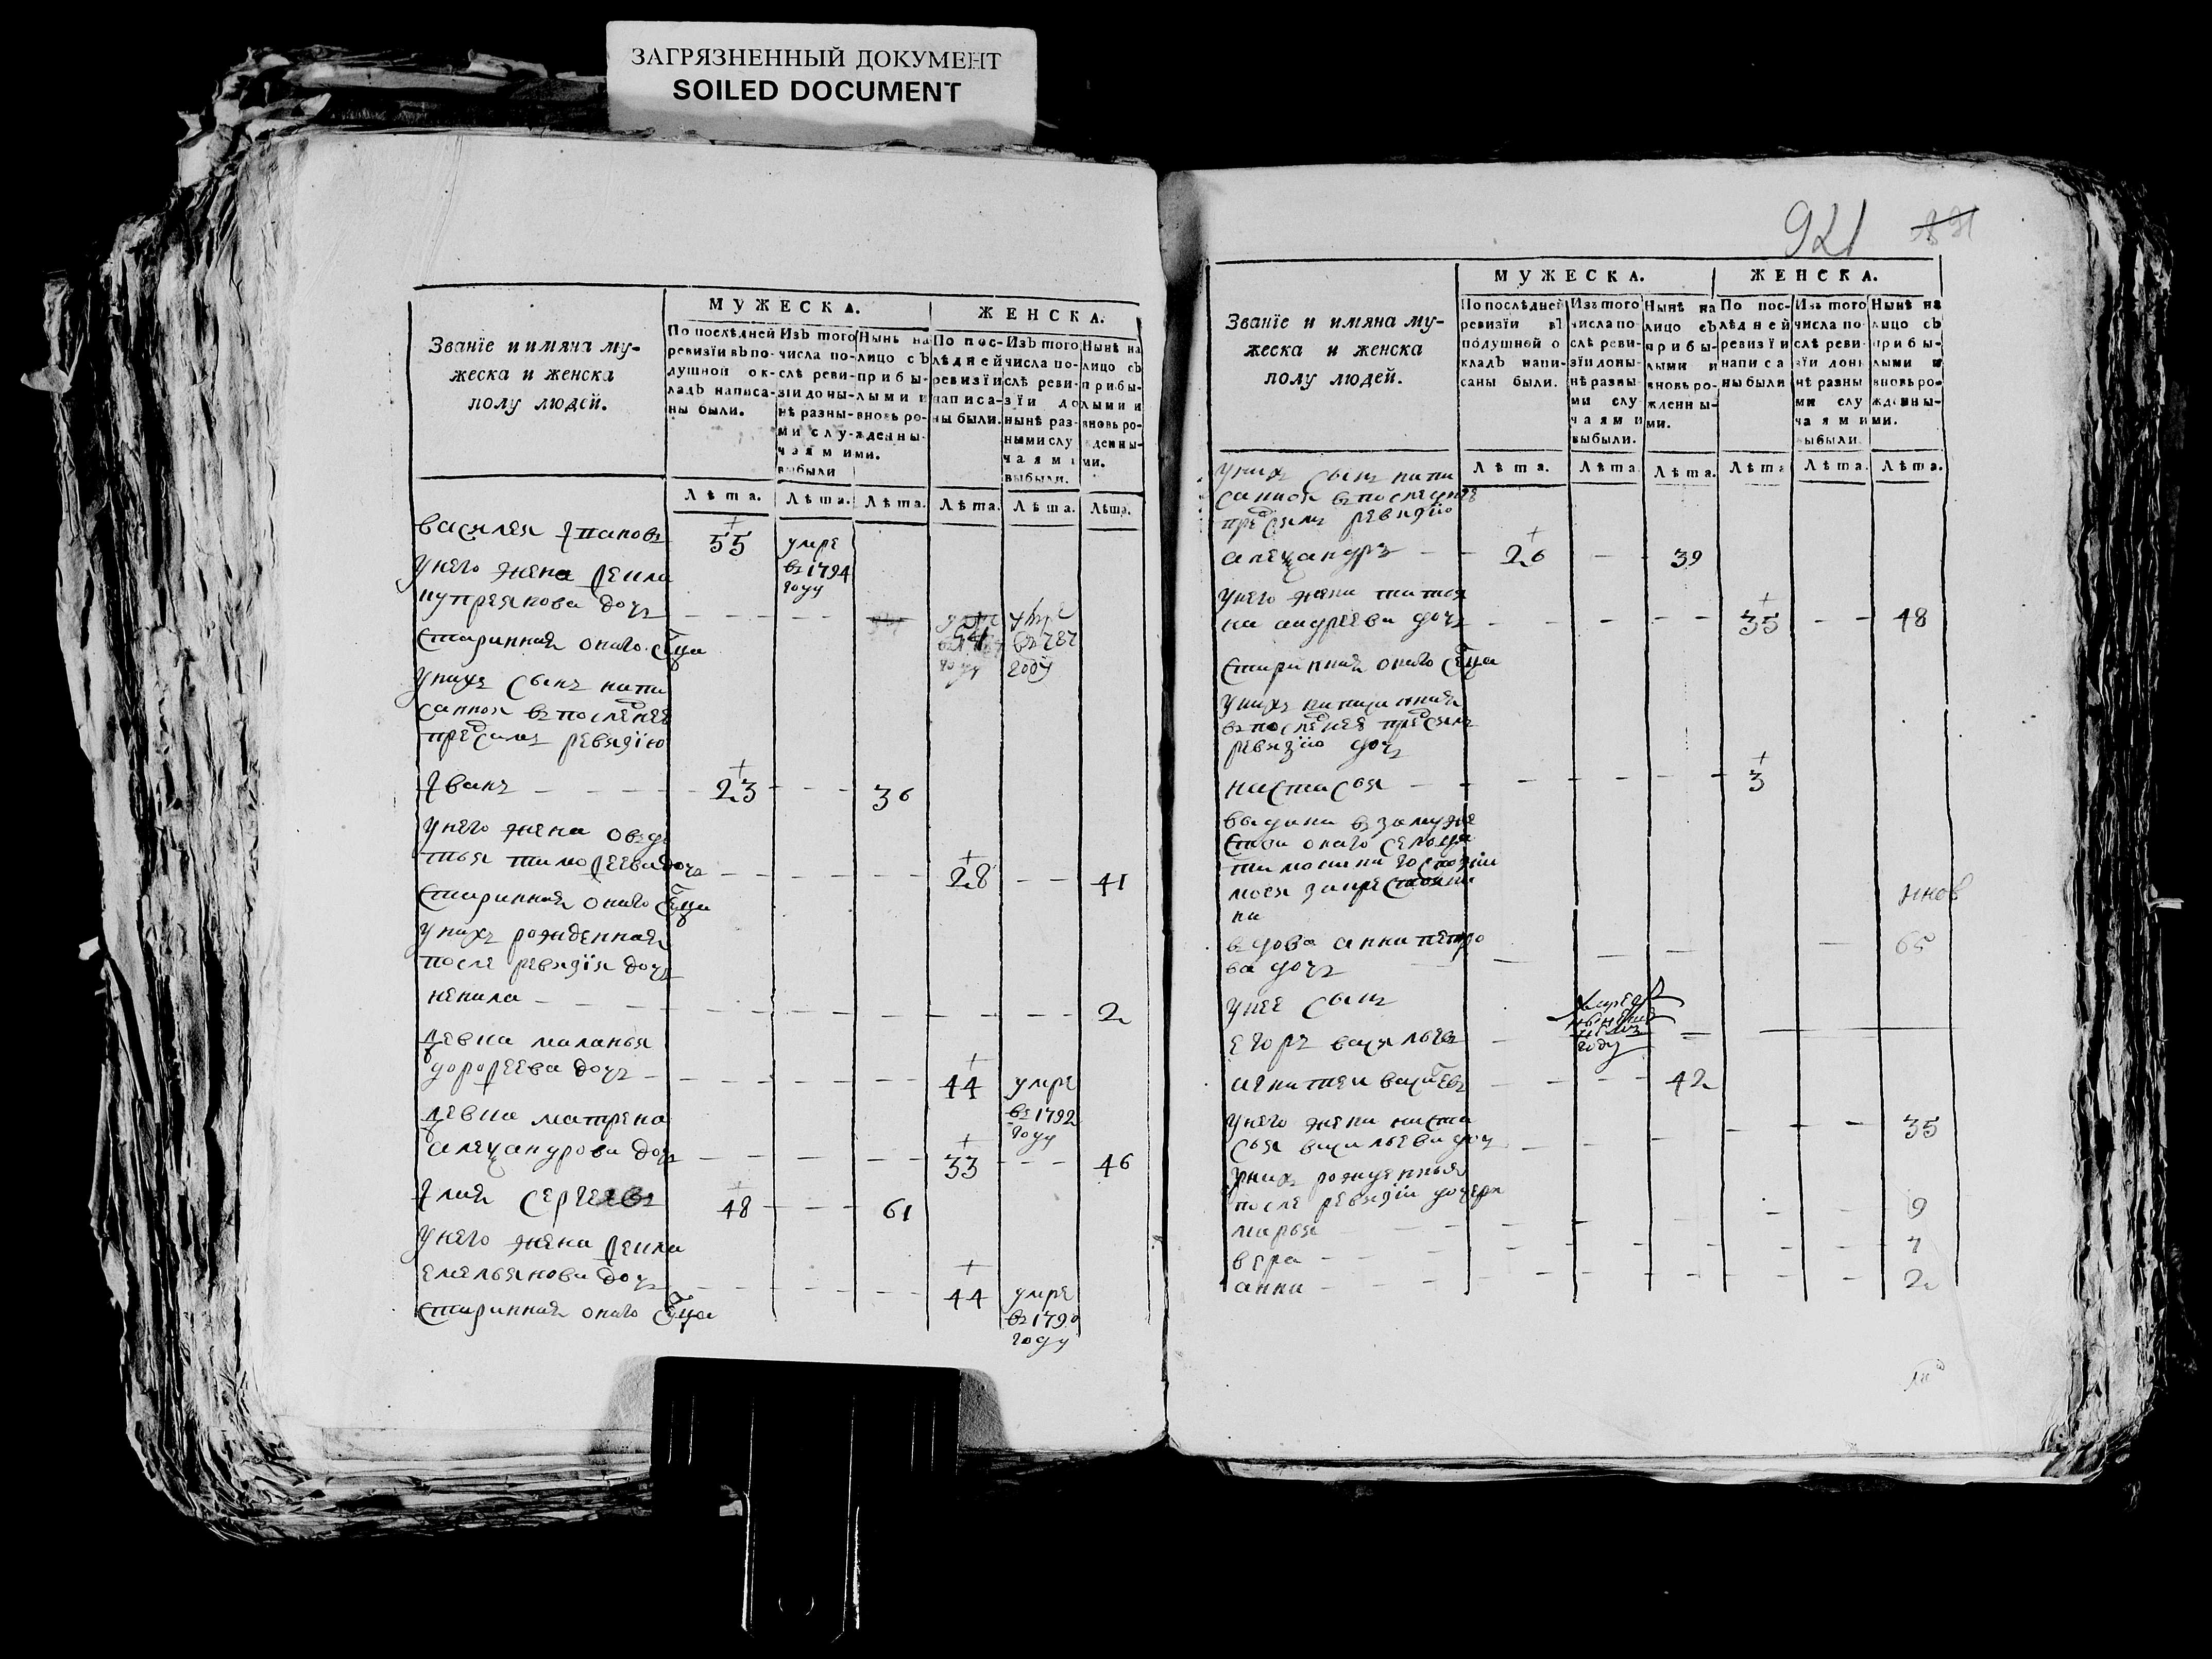 ЗАГРЯЗНЕННЫЙ ДОКУМЕНТ
SOILED DOCUMENT
МУЖЕСКА.
ЖЕНСКА.
Званїе и имяна му-
жеска и женска
полу людей.
По послѣдней
ревизїи въ по-
душной ок-
ладъ написа-
ны были.
Изъ того
числа по-
слѣ реви-
зїи до ны-
нѣ разны-
ми слу-
чаями
выбыли
Нынѣ на
лицо съ
прибы-
лыми и
вновь ро-
жденны-
ми.
По пос-
лѣдней
ревизїи
написа-
ны были.
Изъ того
числа по-
слѣ реви-
зїи до
нынѣ раз-
ными слу
чаями
выбыли.
Нынѣ на
лицо съ
прибы-
лыми и
вновь ро-
жденны-
ми.
Лѣта. Лѣта. Лѣта. Лѣта. Лѣта. Лѣта.
василей ѳпановъ 55 умре
въ 1794
году
унего жена
дочь
старинная онаго сеца 54 умре
въ 787
году
унихъ сынъ напи
санной въпоследнеѣ
предсимъ ревизїю
Иванъ 23 36
унего жена овдо
тья тимоѳеева дочь 28 41
старинная онаго сеца
унихъ рожденная
после ревизїи дочь
ненила 2
девка маланья
дороѳеева дочь 44 умре
въ 1792
году
девка матрена
алеѯандрова дочь 33 46
Илия сергеевъ 48 61
унего жена ѳекла
емельянова дочь 44 умре
въ 1790
году
старинная онаго сеца
921
МУЖЕСКА.
ЖЕНСКА.
Званїе и имяна му-
жеска и женска
полу людей.
По послѣдней
ревизїи въ
подушной о
кладъ напи-
саны были.
Изъ того
числа по-
слѣ реви-
зїи до ны-
нѣ разны-
ми слу
чаями
выбыли.
Нынѣ на
лицо съ
прибы-
лыми и
вновь ро-
жденны-
ми.
По пос-
лѣдней
ревизїи
написа
ны были
Изъ того
числа по-
слѣ реви-
зїи до ны
нѣ разны
ми слу
чаями
выбыли.
Нынѣ на
лицо съ
прибы-
лыми и
вновь ро-
жденны-
ми.
Лѣта. Лѣта Лѣта. Лѣта Лѣта. Лѣта.
унихъ сынъ напи
санной въпоследнеѣ
предсимъ ревизїю
алеѯандръ 26 39
унего жена татья
на андреева дочь 35 48
старинная онаго сеца
унихъ написанная
въпоследнеѣ предсимъ
ревизїю дочь
настасья 3
выдана взамуже
ство онаго сельца
моея закрестьяни
на
вдова анна петро
ва дочь 65
унее сынъ
егоръ васильевъ году
игнатеи васильевъ 42
унего жена наста
сья васильева дочь 35
унихъ рожденныя
после ревизїи дочери
марья 9
вера 7
анна 2